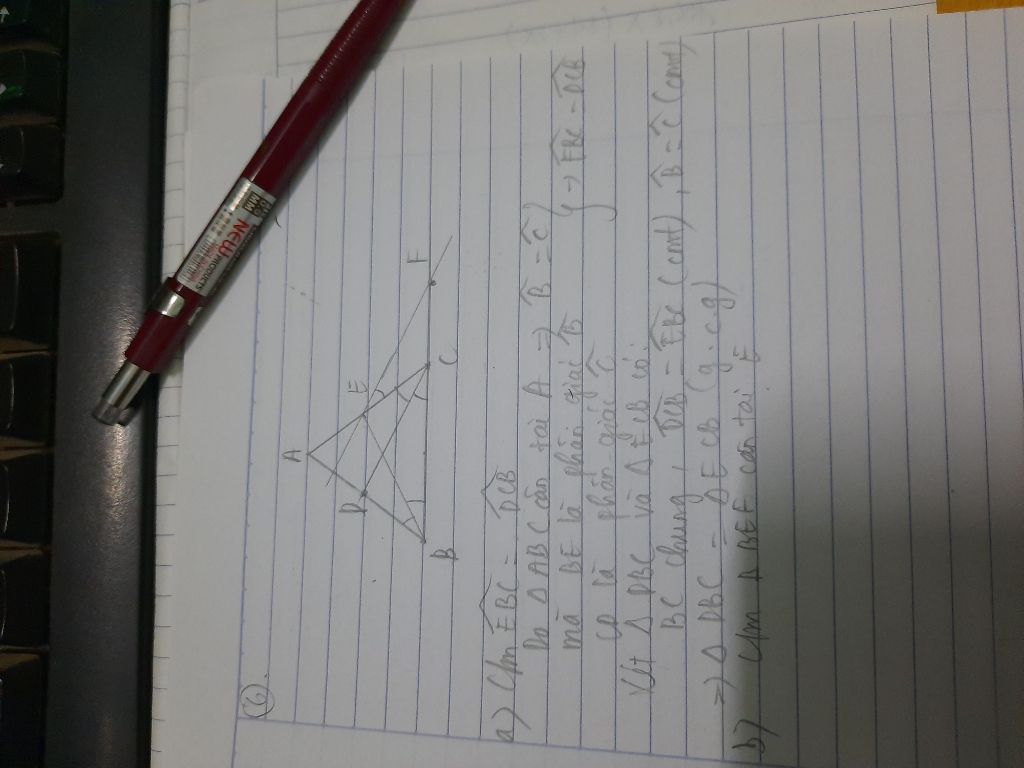 6.
A
D
E
B
C
F
a) C/m EBC = DCB
Do Δ ABC cân tại A => B = C
mà BE là phân giác B
CD là phân giác C
} → EBC = DCB
Xét Δ DBC và Δ ECB có:
BC chung, DCB = EBC (cmt), B = C (cmt)
=> Δ DBC = ΔECB (g.c.g)
b) C/m Δ BEF cân tại E
NEW